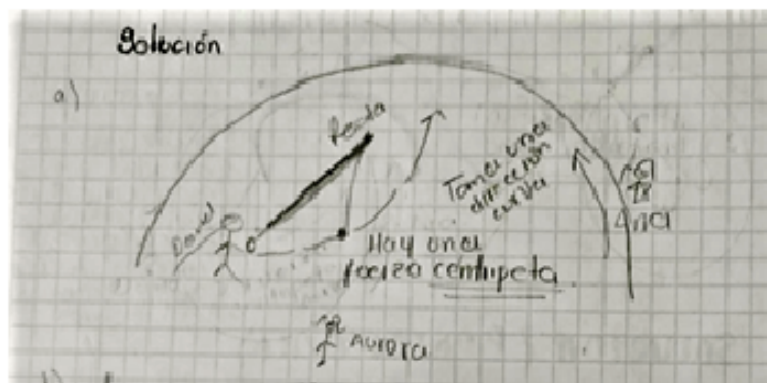 Solución
a)
Recta
Toma una
dirección
curva
Daniel
Ana
Hay una
fuerza centripeta.
Aurora